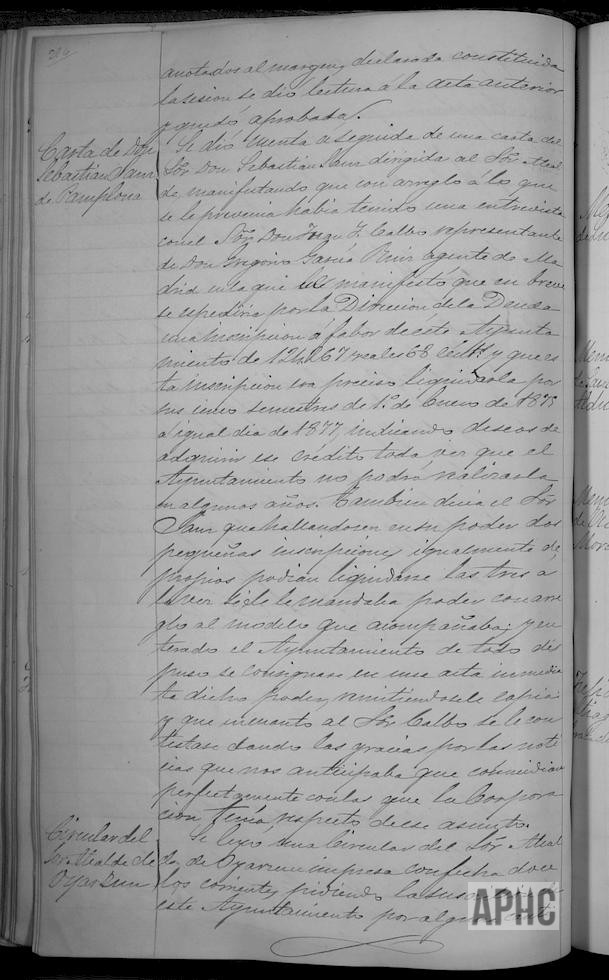 anotados al margen, declarada constituida
la sesion se dió lectura á la acta anterior
y quedó aprobada.
Carta de Don
Sebastian Sanz
de Pamplona
Se dió cuenta á seguida de una carta del
Sor. Don Sebastian Sanz dirigida al Sor. Alcal
de manifestando que con arreglo á lo que
se le prevenia habia tenido una entrevista
con el Sor. Don F. Calbo representante
de Don Gregorio Garcia Ruiz agente de Ma
drid en la que le manifestó que en breve
se espediria por la Direccion de la Deuda
una inscripcion á fabor de este Ayunta
miento de 124.267 reales 68 cents. y que es
ta inscripcion era preciso liquidarla por
sus cinco semestres de 1º de Enero de 187
á igual dia de 1877, indicando deseos de
adquirir ese crédito toda vez que el
Ayuntamiento no podrá realizarla
en algunos años. Tambien decia el Sor
Sanz que hallandose en su poder dos
pequeñas inscripciones igualmente de
propios podian liquidarse las tres á
la vez si se le mandaba poder con arre
glo al modelo que acompañaba; y en
terado el Ayuntamiento de todo dis
puso se consignase en una acta inmedia
ta dicho poder, remitiendosele copia
y que en cuanto al Sor Calbo se le con
testase dando las gracias por las noti
cias que nos anticipaba que coincidian
perfectamente con las que la Corpora
cion tenia respecto de ese asunto.
Circular del
Sor. Alcalde de
Oyarzun
Se leyó una Circular del Sor. Alcal
de de Oyarzun impresa con fecha doce
los corrientes, pidiendo la
este Ayuntamiento por alguna
APHC